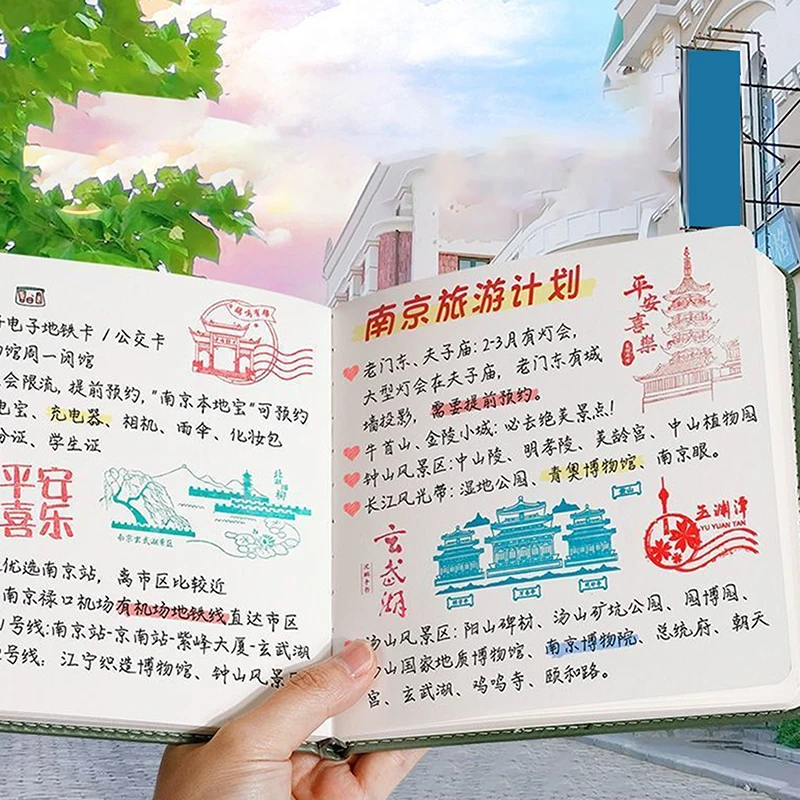 电子地铁卡 / 公交卡
馆周一闭馆
会限流, 提前预约, "南京本地宝"可预约
电宝、充电器、相机、雨伞、化妆包
份证、学生证
平安
喜乐
南京玄武湖景区
优选南京站, 离市区比较近
南京禄口机场有机场地铁线直达市区
号线:南京站-京南站-紫峰大厦-玄武湖
号线: 江宁织造博物馆、钟山风景区
南京旅游计划
平安喜樂
老门东、夫子庙: 2-3月有灯会,
大型灯会在夫子庙, 老门东有城
墙投影, 需要提前预约。
牛首山、金陵小城: 必去绝美景点!
钟山风景区: 中山陵、明孝陵、美龄宫、中山植物园
长江风光带: 湿地公园、青奥博物馆、南京眼。
玄武湖
玉渊潭
YU YUAN TAN
汤山风景区: 阳山碑材、汤山矿坑公园、园博园、
山国家地质博物馆、南京博物院、总统府、朝天
宫、玄武湖、鸡鸣寺、颐和路。